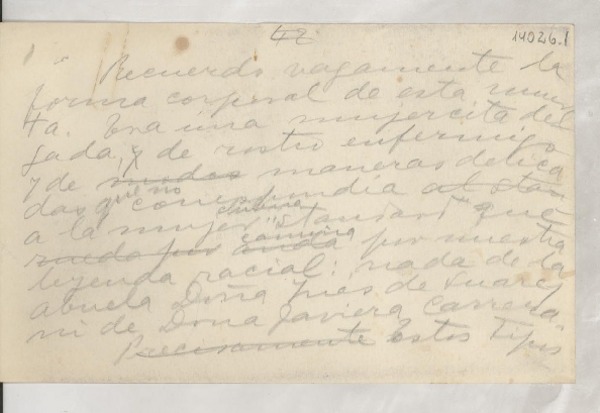 42
14026.1
" Recuerdo vagamente la
forma corporal de esta muer-
ta. Era una mujercita del-
gada, y de rostro enfermizo
y de modos maneras delica
das que no correspondía al stan
a la mujer chilena "standard" que
rueda por anda camina por nuestra
leyenda racial: nada de la
abuela Doña Ines de Suarez
ni de Doña Javiera Carrera.
Precisamente Estos tipos